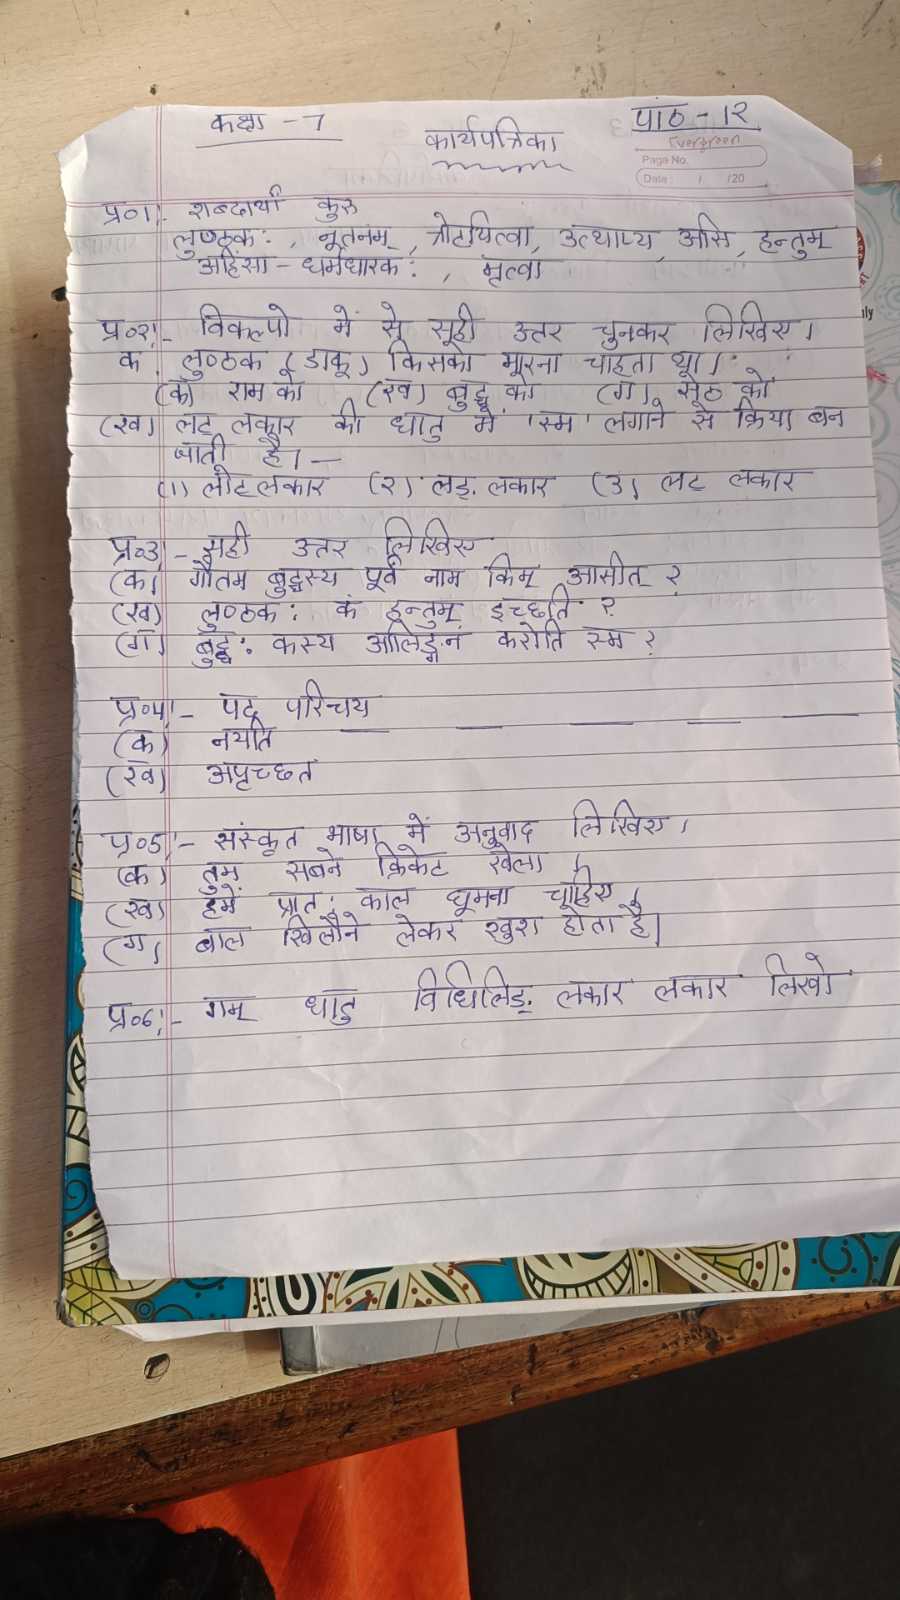 कक्षा - 7
कार्यपत्रिका
पाठ - १२
Evergreen
Page No.
Date: / /20
प्र०1:- शब्दार्थाः कुरु
लुण्ठकः, नूतनम्, त्रोटयित्वा, उत्थाप्य, असि, हन्तुम्
अहिंसा - धर्मधारकः, मृत्वा
प्र०२:- विकल्पो में से सही उत्तर चुनकर लिखिए।
क लुण्ठक (डाकू) किसको मारना चाहता था।
(क) राम को (ख) बुद्ध को (ग) सेठ को
(ख) लट् लकार की धातु में 'स्म' लगाने से क्रिया बन
जाती है। —
(1) लोट लकार (२) लङ्. लकार (3) लट लकार
प्र०3:- सही उत्तर लिखिए
(क) गौतम बुद्धस्य पूर्व नाम किम् आसीत् ?
(ख) लुण्ठकः कं हन्तुम् इच्छति ?
(ग) बुद्धः कस्य आलिङ्गनं करोति स्म ?
प्र०4:- पद परिचय
(क) नयति
(ख) अपृच्छत
प्र०5:- संस्कृत भाषा में अनुवाद लिखिए।
(क) तुम सबने क्रिकेट खेला।
(ख) हमें प्रातः काल घूमना चाहिए।
(ग) बाल खिलौने लेकर खुश होता है।
प्र०6:- गम् धातु विधिलिङ्. लकार लकार लिखो